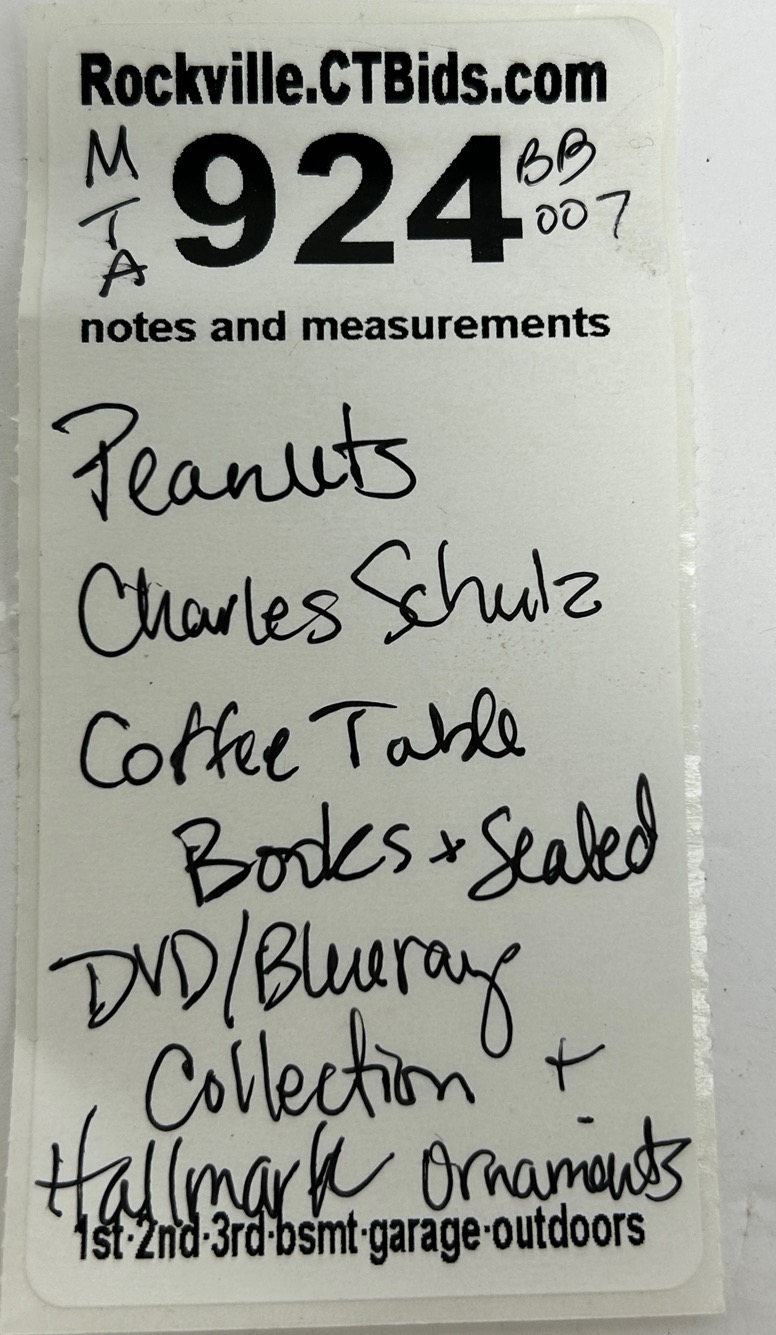 Rockville.CTBids.com
M
T
A
924
BB
007
notes and measurements
Peanuts
Charles Schulz
Coffee Table
Books + Sealed
DVD/Blueray
Collection +
Hallmark Ornaments
1st·2nd·3rd·bsmt·garage·outdoors